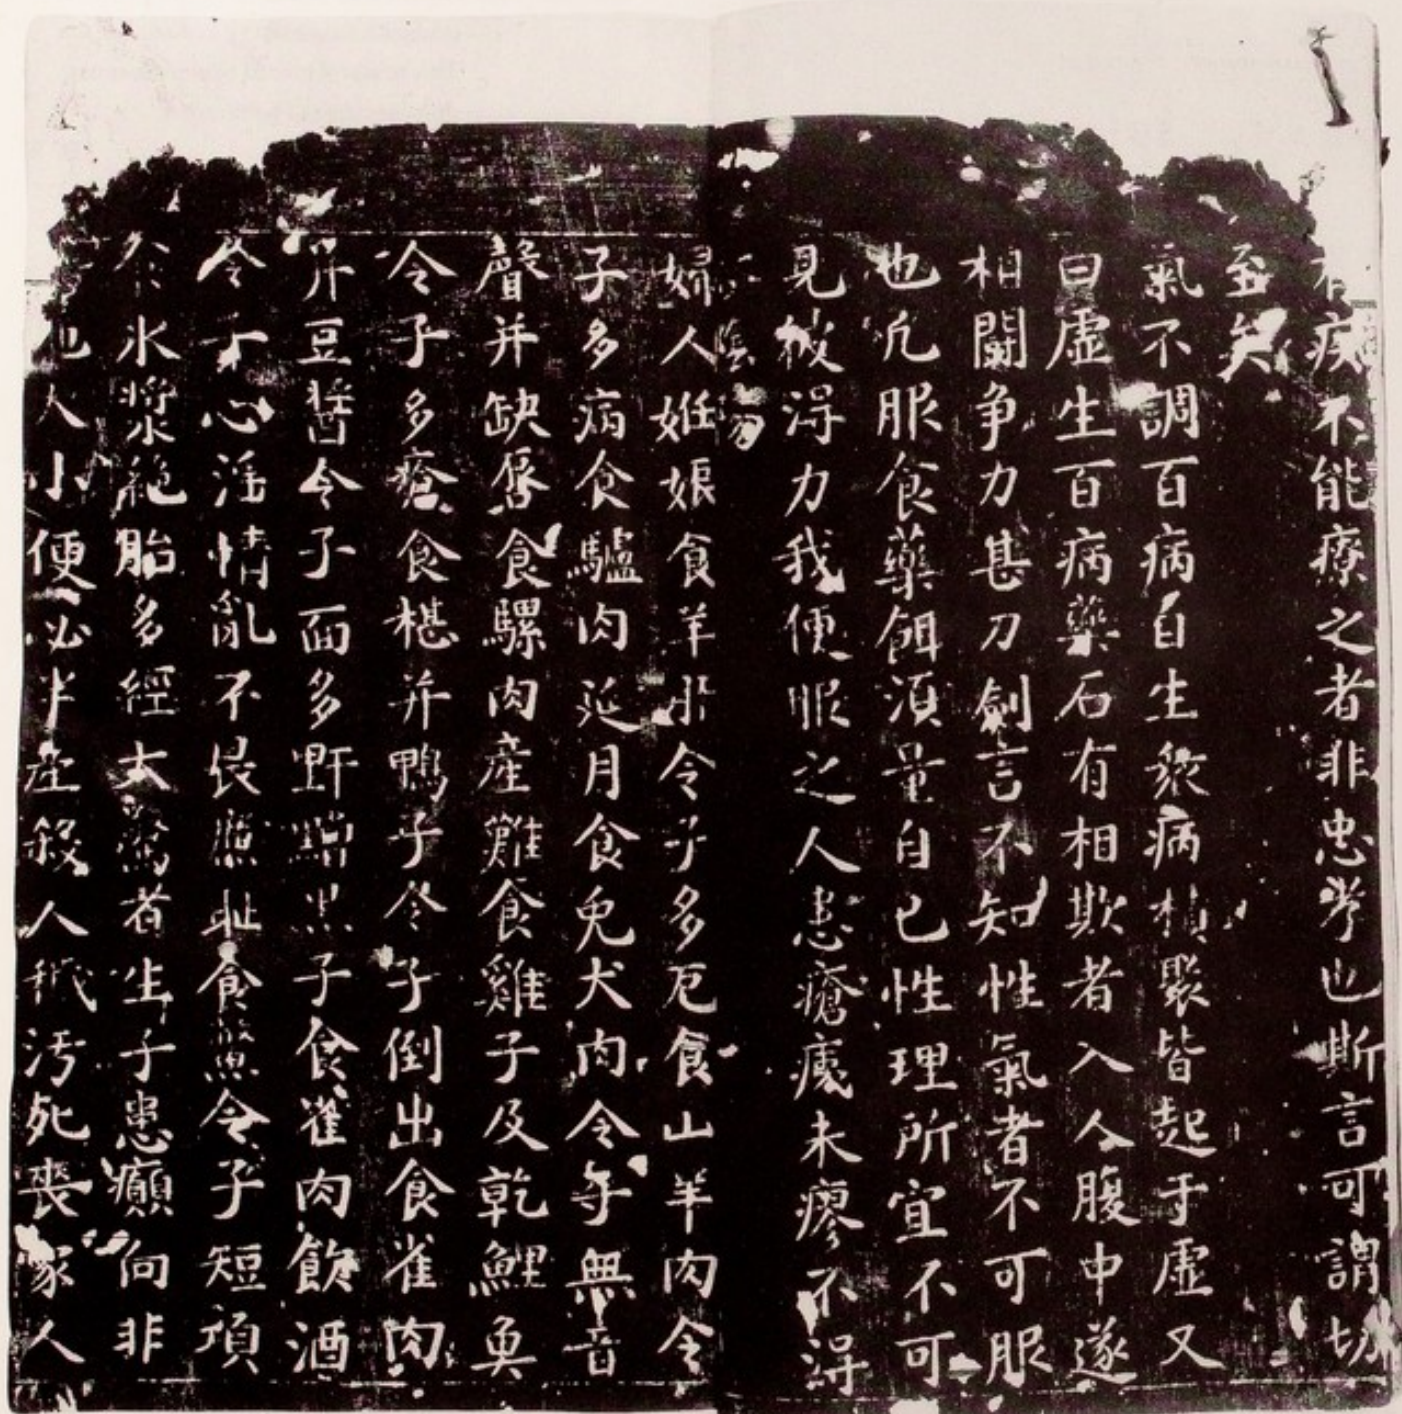 有疾不能療之者非忠孝也斯言可謂切
至矣
氣不調百病自生衆病積聚皆起于虛又
曰虛生百病藥石有相欺者入人腹中遂
相鬭争力甚刀劍言不知性氣者不可服
也凢服食藥餌湏量自己性理所宜不可
見彼淂力我便服之人患瘡痍未瘳不淂
婦人姙娠食羊肝令子多厄食山羊肉令
子多病食驢肉延月食兔犬肉令子無音
聲并缺脣食騾肉産難食雞子及乾鯉魚
令子多瘡食椹并鴨子令子倒出食雀肉
并豆醬令子面多䵟䵳黑子食雀肉飲酒
令子心滛情亂不畏羞恥食鱉令子短項
水漿絶胎多經大驚者生子患癲向非
地人小便必半産殺人穢汚死喪家人